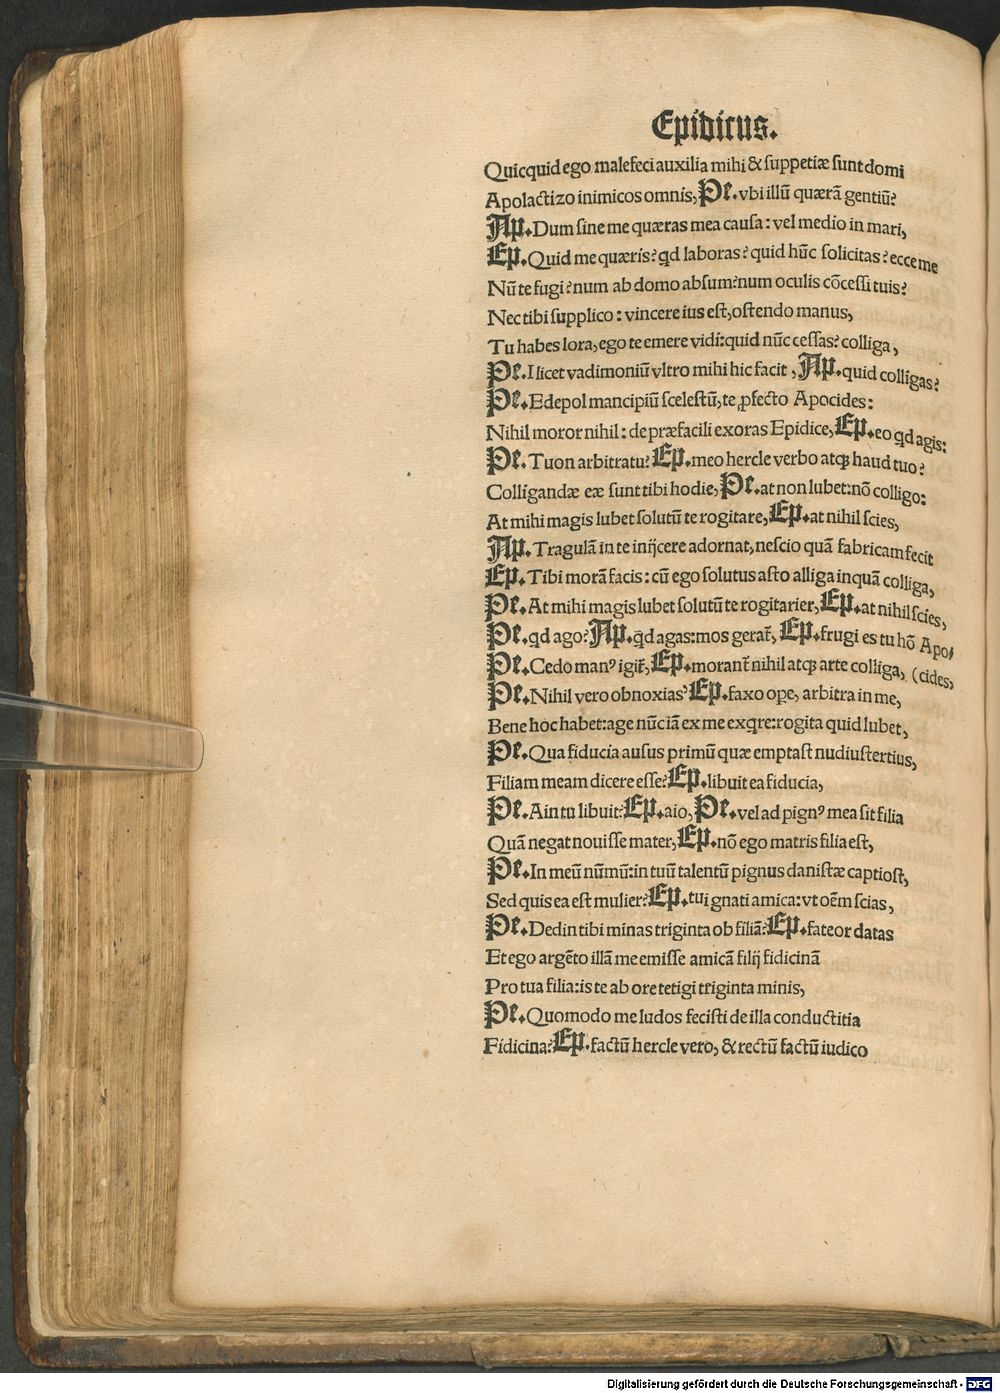 Epidicus.
Quicquid ego malefeci auxilia mihi & suppetiæ sunt domi
Apolactizo inimicos omnis, Pe. vbi illū quærā gentiū?
Ap. Dum sine me quæras mea causa: vel medio in mari,
Ep. Quid me quæris? qd laboras? quid hūc solicitas? ecce me
Nū te fugi? num ab domo absum? num oculis cōcessi tuis?
Nec tibi supplico: vincere ius est, ostendo manus,
Tu habes lora, ego te emere vidi: quid nūc cessas? colliga,
Pe. Ilicet vadimoniū vltro mihi hic facit, Ap. quid colligas?
Pe. Edepol mancipiū scelestū, te ꝓfecto Apocides:
Nihil moror nihil: de præfacili exoras Epidice, Ep. eo qd agis:
Pe. Tuon arbitratu? Ep. meo hercle verbo atqꝫ haud tuo?
Colligandæ eæ sunt tibi hodie, Pe. at non lubet: nō colligo:
At mihi magis lubet solutū te rogitare, Ep. at nihil scies,
Ap. Tragulā in te inijcere adornat, nescio quā fabricam fecit
Ep. Tibi morā facis: cū ego solutus asto alliga inquā colliga,
Pe. At mihi magis lubet solutū te rogitarier, Ep. at nihil scies,
Pe. qd ago? Ap. qd agas: mos gerat̄, Ep. frugi es tu hō Apo/
Pe. Cedo manꝰ igit̄, Ep. morant̄ nihil atqꝫ arte colliga, (cides,
Pe. Nihil vero obnoxias? Ep. faxo oꝑe, arbitra in me,
Bene hoc habet: age nūc iā ex me exqre: rogita quid lubet,
Pe. Qua fiducia ausus primū quæ emptast nudiustertius,
Filiam meam dicere esse? Ep. libuit ea fiducia,
Pe. Ain tu libuit? Ep. aio, Pe. vel ad pignꝰ mea sit filia
Quā negat nouisse mater, Ep. nō ego matris filia est,
Pe. In meū nūmū: in tuū talentū pignus danistæ captiost,
Sed quis ea est mulier? Ep. tui gnati amica: vt oēm scias,
Pe. Dedin tibi minas triginta ob filiā? Ep. fateor datas
Et ego argēto illā me emisse amicā filij fidicinā
Pro tua filia: is te ab ore tetigi triginta minis,
Pe. Quomodo me ludos fecisti de illa conductitia
Fidicina? Ep. factū hercle vero, & rectū factū iudico
Digitalisierung gefördert durch die Deutsche Forschungsgemeinschaft - DFG